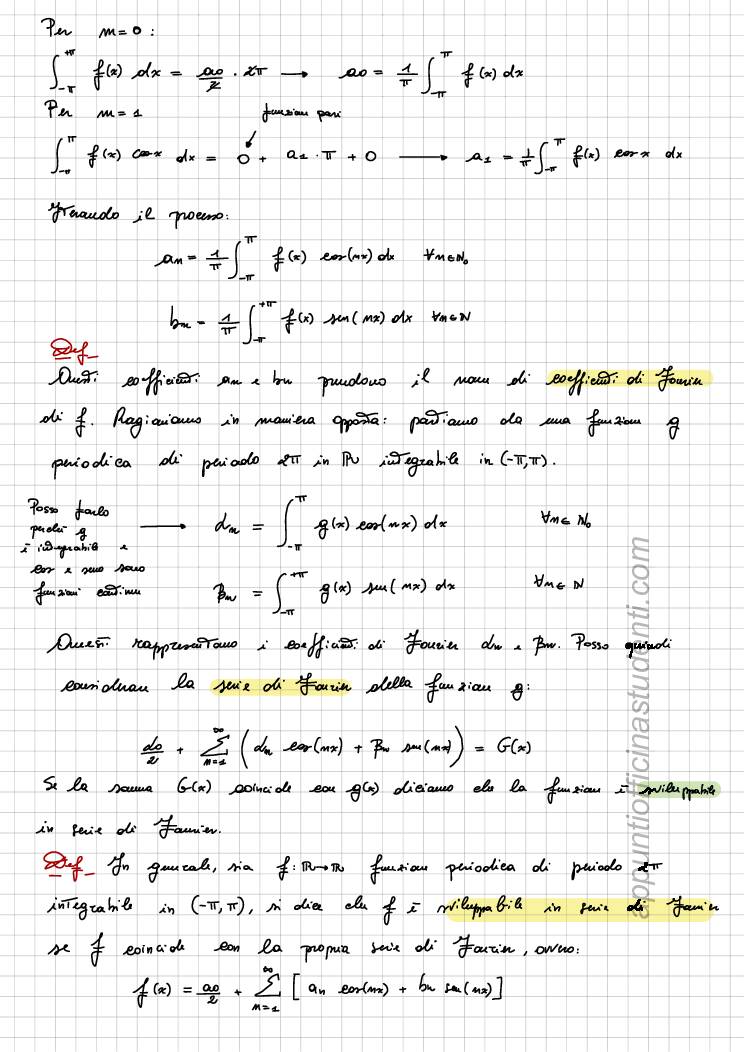 Per m=0:
∫_{-π}^{+π} f(x) dx = a0/2 · 2π → a0 = 1/π ∫_{-π}^{π} f(x) dx
Per m=1
funzioni pari
∫_{-π}^{π} f(x) cosx dx = 0 + a1 · π + 0 → a1 = 1/π ∫_{-π}^{π} f(x) cosx dx
Iterando il processo:
an = 1/π ∫_{-π}^{π} f(x) cos(nx) dx ∀n∈N₀
bn = 1/π ∫_{-π}^{+π} f(x) sen(nx) dx ∀n∈N
Def_
Questi coefficienti an e bn prendono il nome di coefficienti di Fourier
di f. Ragioniamo in maniera opposta: partiamo da una funzione g
periodica di periodo 2π in R integrabile in (-π,π).
Posso farlo
perché g
è integrabile e
cos e seno sono
funzioni continue
→ αn = ∫_{-π}^{π} g(x) cos(nx) dx ∀n∈N₀
βn = ∫_{-π}^{+π} g(x) sen(nx) dx ∀n∈N
Questi rappresentano i coefficienti di Fourier αn e βn. Posso quindi
considerare la serie di Fourier della funzione g:
α0/2 + ∑_{n=1}^{∞} (αn cos(nx) + βn sen(nx)) = G(x)
Se la somma G(x) coincide con g(x) diciamo che la funzione è sviluppabile
in serie di Fourier.
Def_ In generale, sia f: R→R funzione periodica di periodo 2π
integrabile in (-π,π), si dice che f è sviluppabile in serie di Fourier
se f coincide con la propria serie di Fourier, ovvero:
f(x) = a0/2 + ∑_{n=1}^{∞} [an cos(nx) + bn sen(nx)]
appuntiofficinastudenti.com